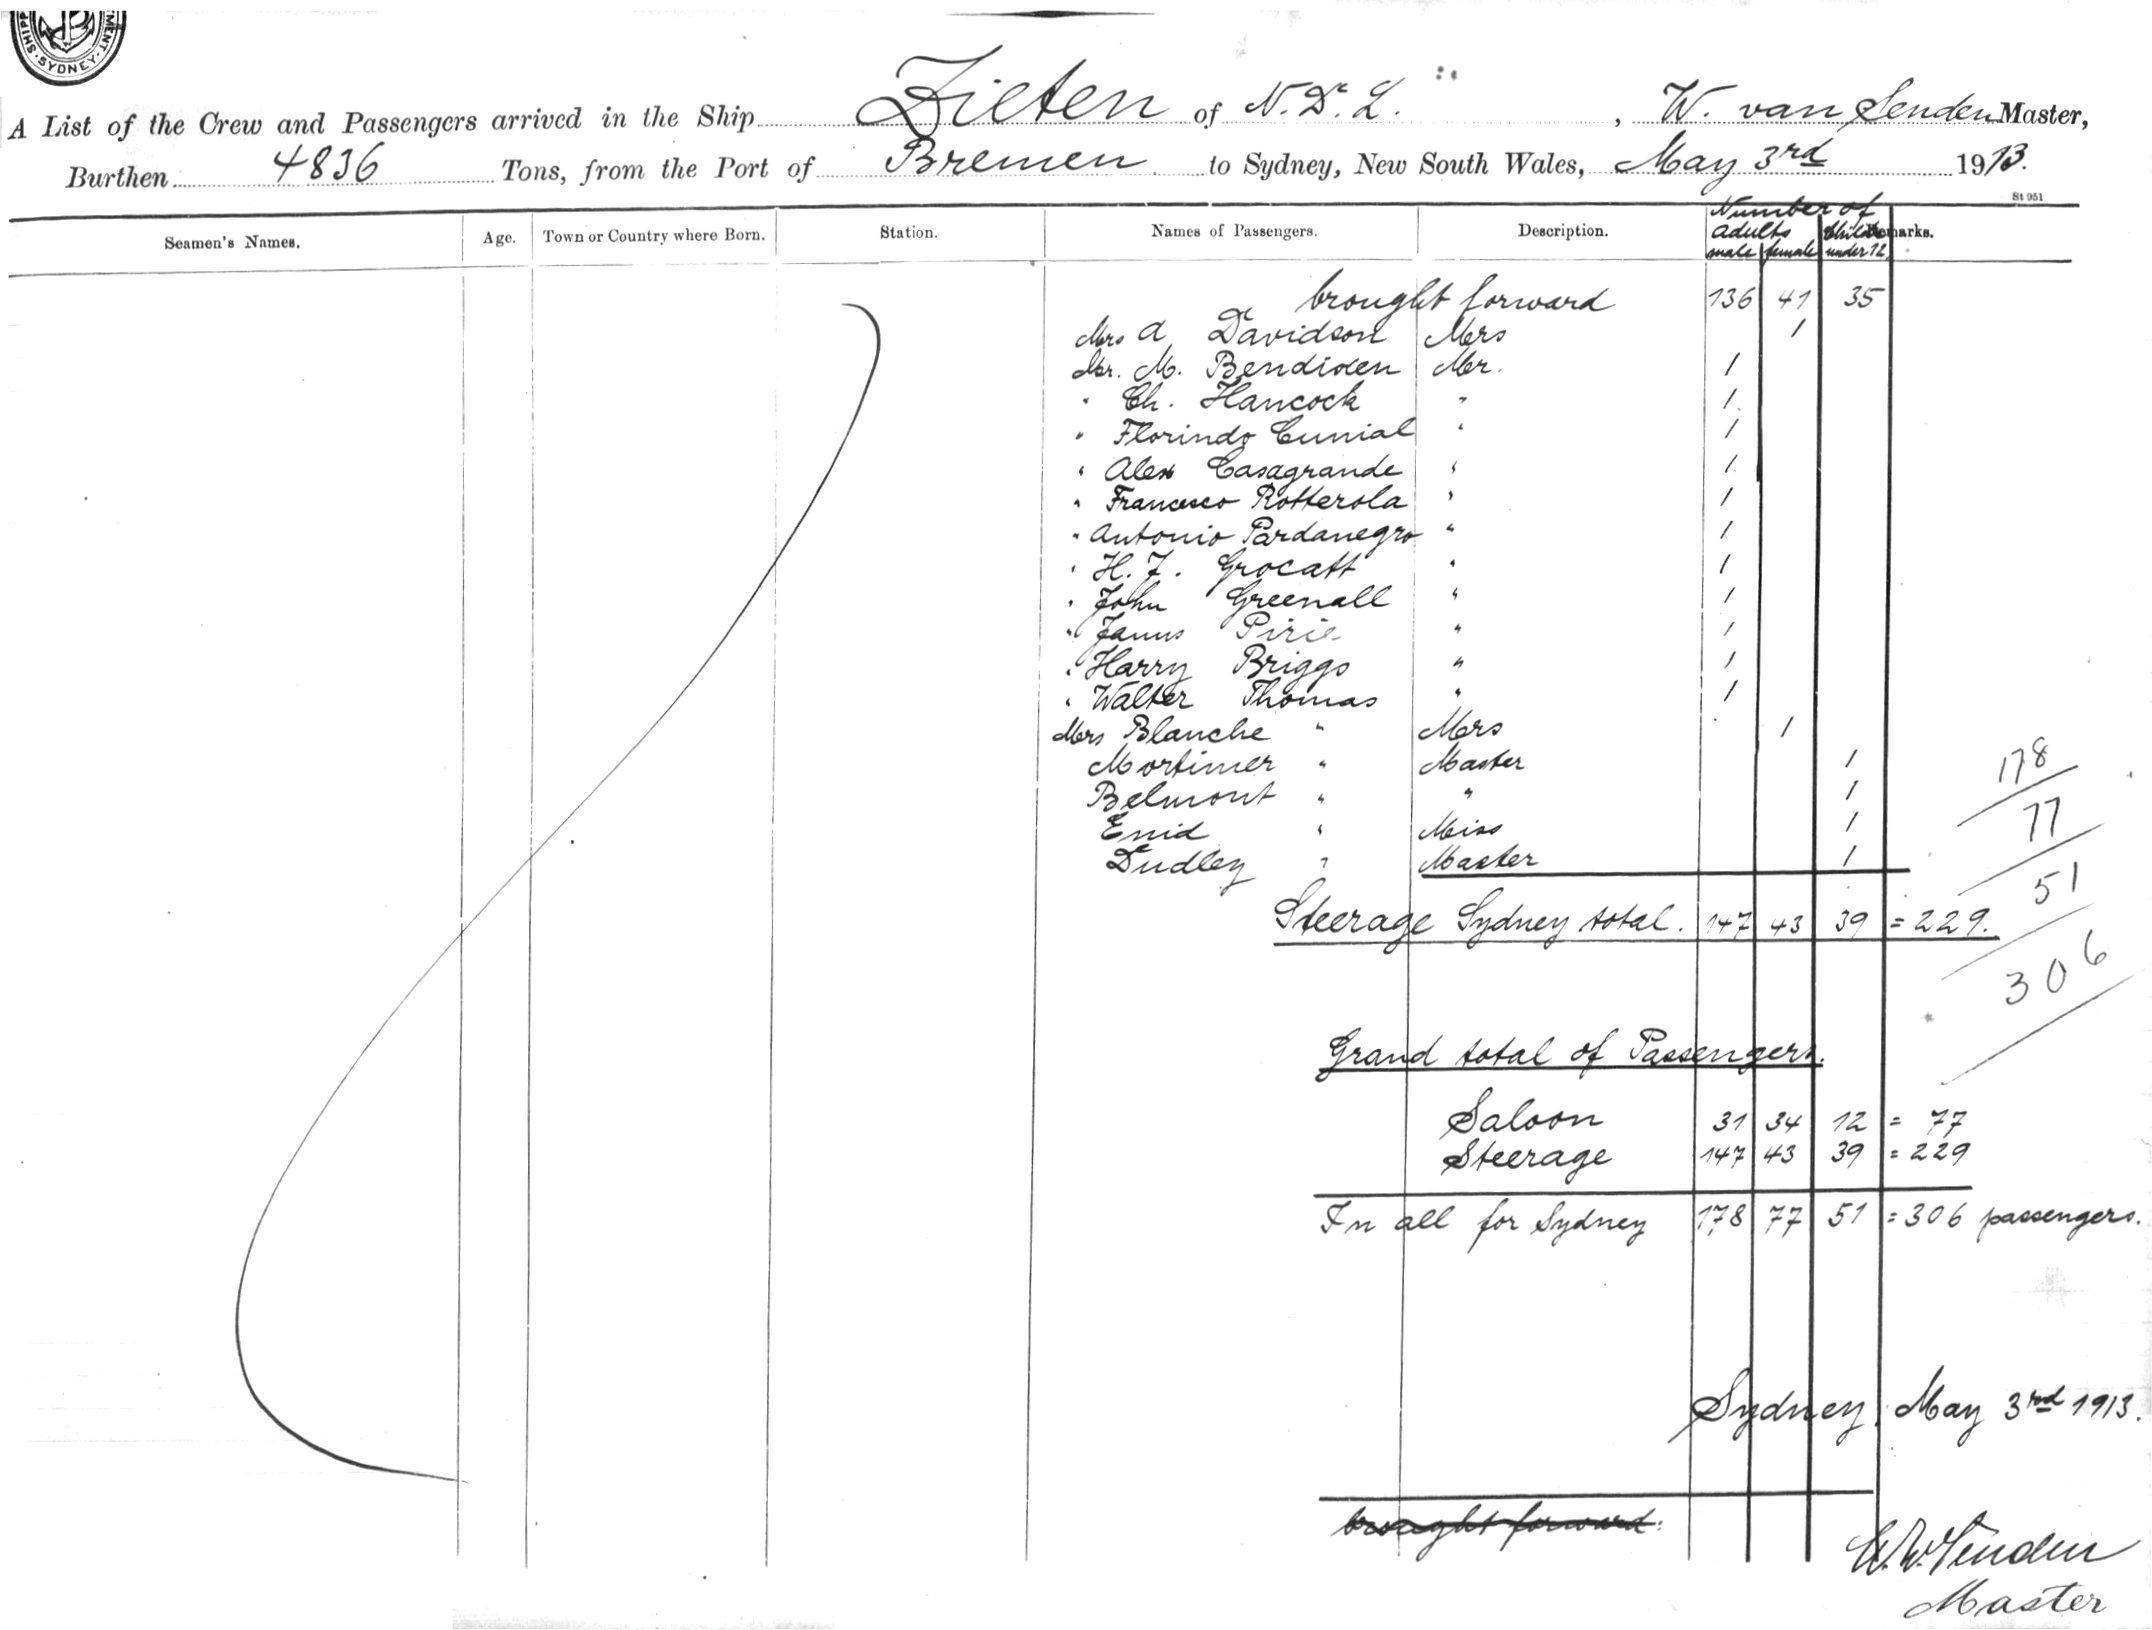 SHIPP MENT · SYDNEY ·
A List of the Crew and Passengers arrived in the Ship Zieten of N. D. L. , W. van Senden Master,
Burthen 4836 Tons, from the Port of Bremen to Sydney, New South Wales, May 3rd 1913.
St 951
Seamen's Names. Age. Town or Country where Born. Station. Names of Passengers. Description. Number of Adults male female Childr under 12 Remarks.
brought forward 136 41 35
Mrs A Davidson Mrs 1
Mr. M. Bendixen Mr. 1
" Ch. Hancock " 1
" Florindo Cunial " 1
" Alex Casagrande " 1
" Francesco Rotterola " 1
" Antonio Pardanegro " 1
" H. F. Grocatt " 1
" John Greenall " 1
" James Pirie " 1
" Harry Briggs " 1
" Walter Thomas " 1
Mrs Blanche " Mrs 1
Mortimer " Master 1
Belmont " " 1
Enid " Miss 1
Dudley " Master 1
178
77
51
306
Steerage Sydney total. 147 43 39 = 229.
Grand total of Passengers.
Saloon 31 34 12 = 77
Steerage 147 43 39 = 229
In all for Sydney 178 77 51 = 306 passengers.
Sydney, May 3rd 1913.
brought forward:
W. v. Senden
Master